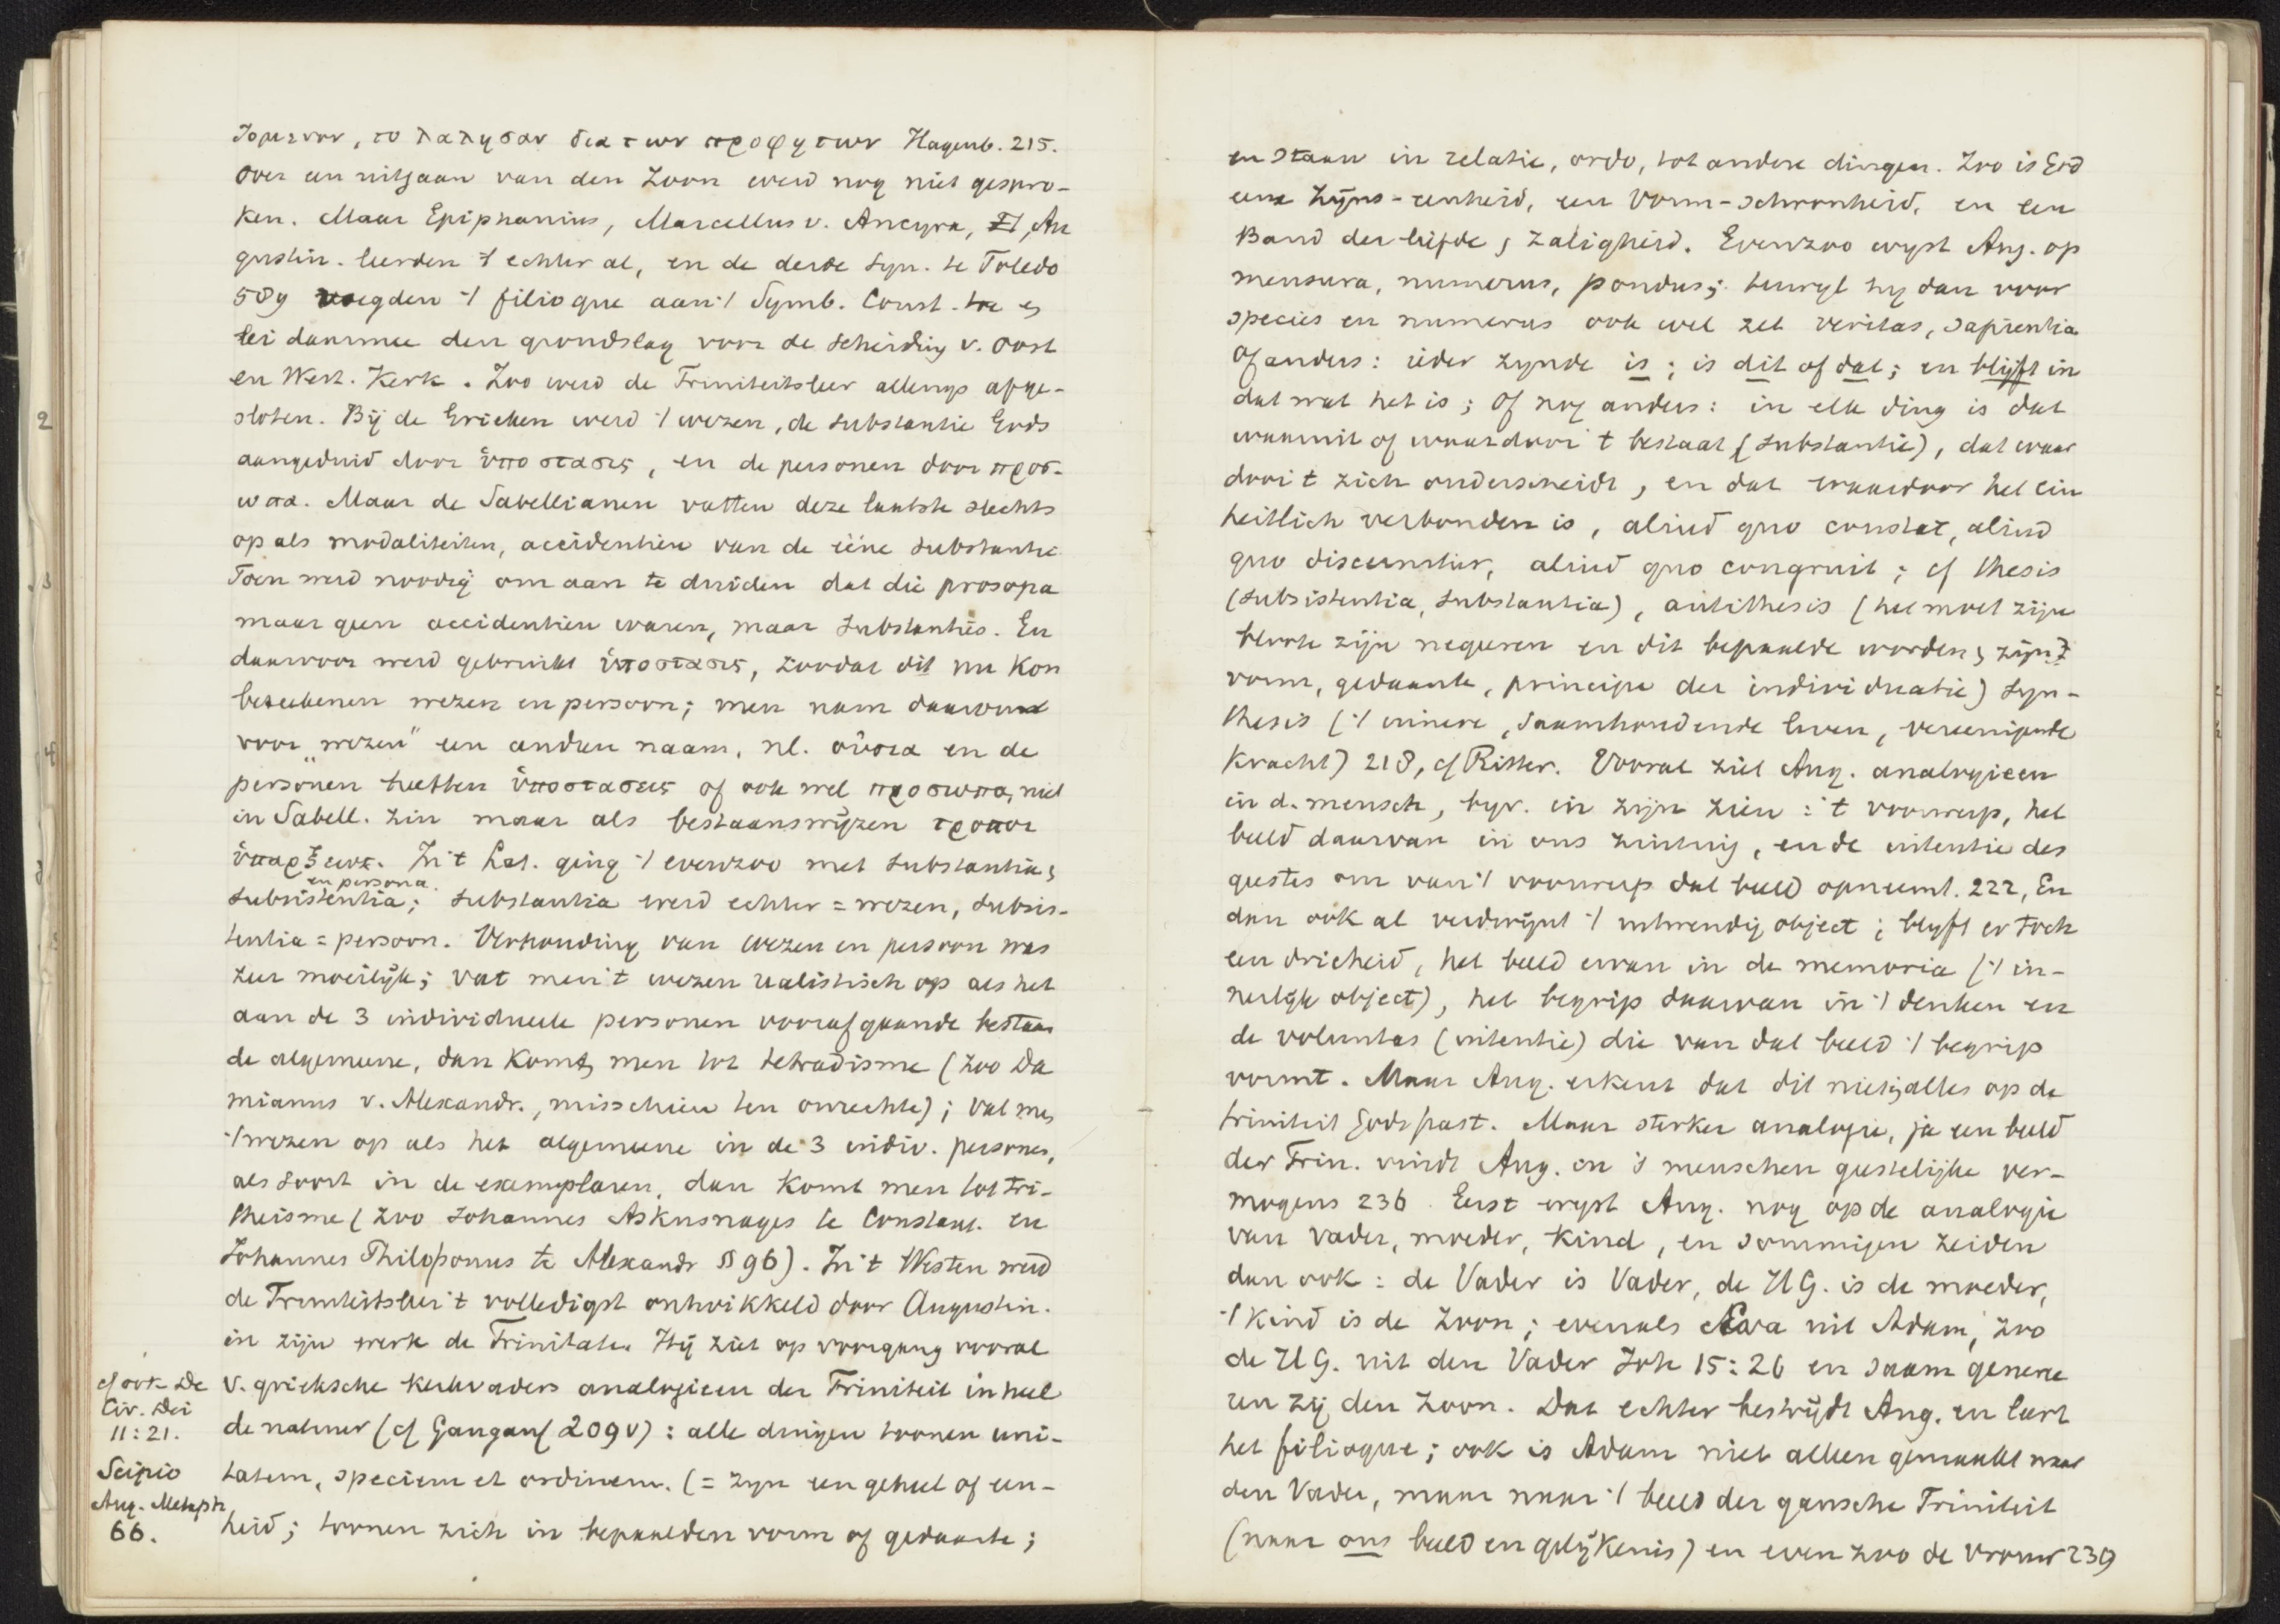 δομενον, το λαλησαν δια των προφητων Hagenb. 215.
Over een uitgaan van den Zoon werd nog niet gespro-
ken. Maar Epiphanius, Marcellus v. Ancyra, Au
gustin. leerden 't echter al, en de derde syn. te Toledo
589 voegden 't filioque aan 't Symb. Const. toe en
lei daarmee den grondslag voor de scheiding v. Oost
en West. Kerk. Zoo werd de Triniteitsleer allengs afge-
sloten. Bij de Grieken werd 't wezen, de substantie Gods
aangeduid door ὑποστασις, en de personen door προσ-
ωπα. Maar de Sabellianen vatten deze laatste slechts
op als modaliteiten, accidentien van de ééne substantie
Toen werd noodig om aan te duiden dat die prosopa
maar geen accidentien waren, maar substanties. En
daarvoor werd gebruikt ὑποστασις, zoodat dit nu kon
beteekenen wezen en persoon; men nam daarom
voor „wezen" een andren naam, nl. οὐσια en de
personen heetten ὑποστασεις of ook wel προσωπα, niet
in Sabell. zin maar als bestaanswijzen τροποι
ὑπαρξεως. In 't Lat. ging 't evenzoo met substantia,
en persona.
subsistentia; substantia werd echter = wezen, subsis-
tentia = persoon. Verhouding van wezen en persoon was
zeer moeilijk; vat men 't wezen realistisch op als het
aan de 3 individueele personen voorafgaande bestaan
de algemeene, dan komt men tot tetradisme (zoo Da
mianus v. Alexandr., misschien ten onrechte); vat men
't wezen op als het algemeene in de 3 indiv. personen,
als soort in de exemplaren, dan komt men tot tri-
theisme (zoo Johannes Askusnages te Constant. en
Johannes Philoponus te Alexandr § 96). In 't Westen werd
de Triniteitsleer 't volledigst ontwikkeld door Augustin.
in zijn werk de Trinitate. Hij ziet op voorgang vooral
cf ook De
Civ. Dei
11:21.
Scipio
Aug. Metaph
66.
v. grieksche kerkvaders analogieen der Triniteit in heel
de natuur (cf Gangauf 209v): alle dingen toonen uni-
tatem, speciem et ordinem. (= zijn een geheel of een-
heid; toonen zich in bepaalden vorm of gedaante;
en staan in relatie, ordo, tot andere dingen. Zoo is God
eene Zijns-eenheid, een Vorm-schoonheid, en een
Band der liefde, zaligheid. Evenzoo wijst Aug. op
mensura, numerus, pondus; terwijl hij dan voor
species en numerus ook wel zet veritas, sapientia
Of anders: ieder zijnde is; is dit of dat; en blijft in
dat wat het is; of nog anders: in elk ding is dat
waaruit of waardoor 't bestaat (substantie), dat waar
door 't zich onderscheidt, en dat waardoor het ein
heitlich verbonden is, aliud quo constat, aliud
quo discernitur, aliud quo congruit; cf thesis
(subsistentia, substantia), antithesis (het moet zijn
bloote zijn negeeren en dit bepaalde worden, zijn
vorm, gedaante, principe der individuatie) syn-
thesis ('t innere, saamhoudende leven, vereenigende
kracht) 218, cf Ritter. Vooral ziet Aug. analogieen
in d. mensch, bijv. in zijn zien: 't voorwerp, het
beeld daarvan in ons zintuig, en de intentie des
geestes om van 't voorwerp dat beeld opneemt. 222, En
dan ook al verdwijnt 't uitwendig object; blijft er toch
een drieheid, het beeld ervan in de memoria ('t in-
nerlijk object), het begrip daarvan in 't denken en
de voluntas (intentie) die van dat beeld 't begrip
vormt. Maar Aug. erkent dat dit niet alles op de
triniteit Gods past. Maar sterker analogie, ja een beeld
der Trin. vindt Aug. in 's menschen geestelijke ver-
mogens 236. Eerst wijst Aug. nog op de analogie
van vader, moeder, kind, en sommigen zeiden
dan ook: de Vader is Vader, de H.G. is de moeder,
't kind is de Zoon; evenals Eva uit Adam, zoo
de H.G. uit den Vader Joh 15:26 en saam genere
ren zij den Zoon. Dat echter bestrijdt Aug. en leert
het filioque; ook is Adam niet alleen gemaakt naar
den Vader, maar naar 't beeld der gansche Triniteit
(naar ons beeld en gelijkenis) en even zoo de vrouw 239